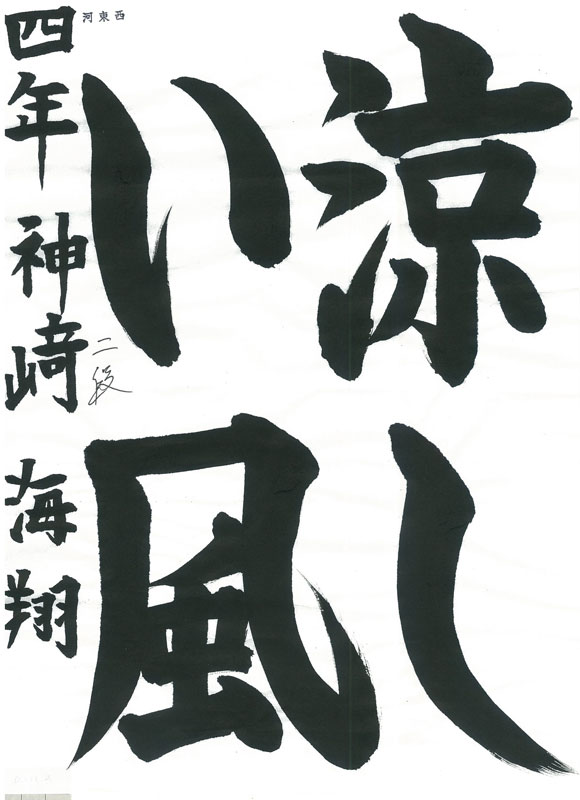 涼し
い風
河東西
四年 神﨑 海翔
二段